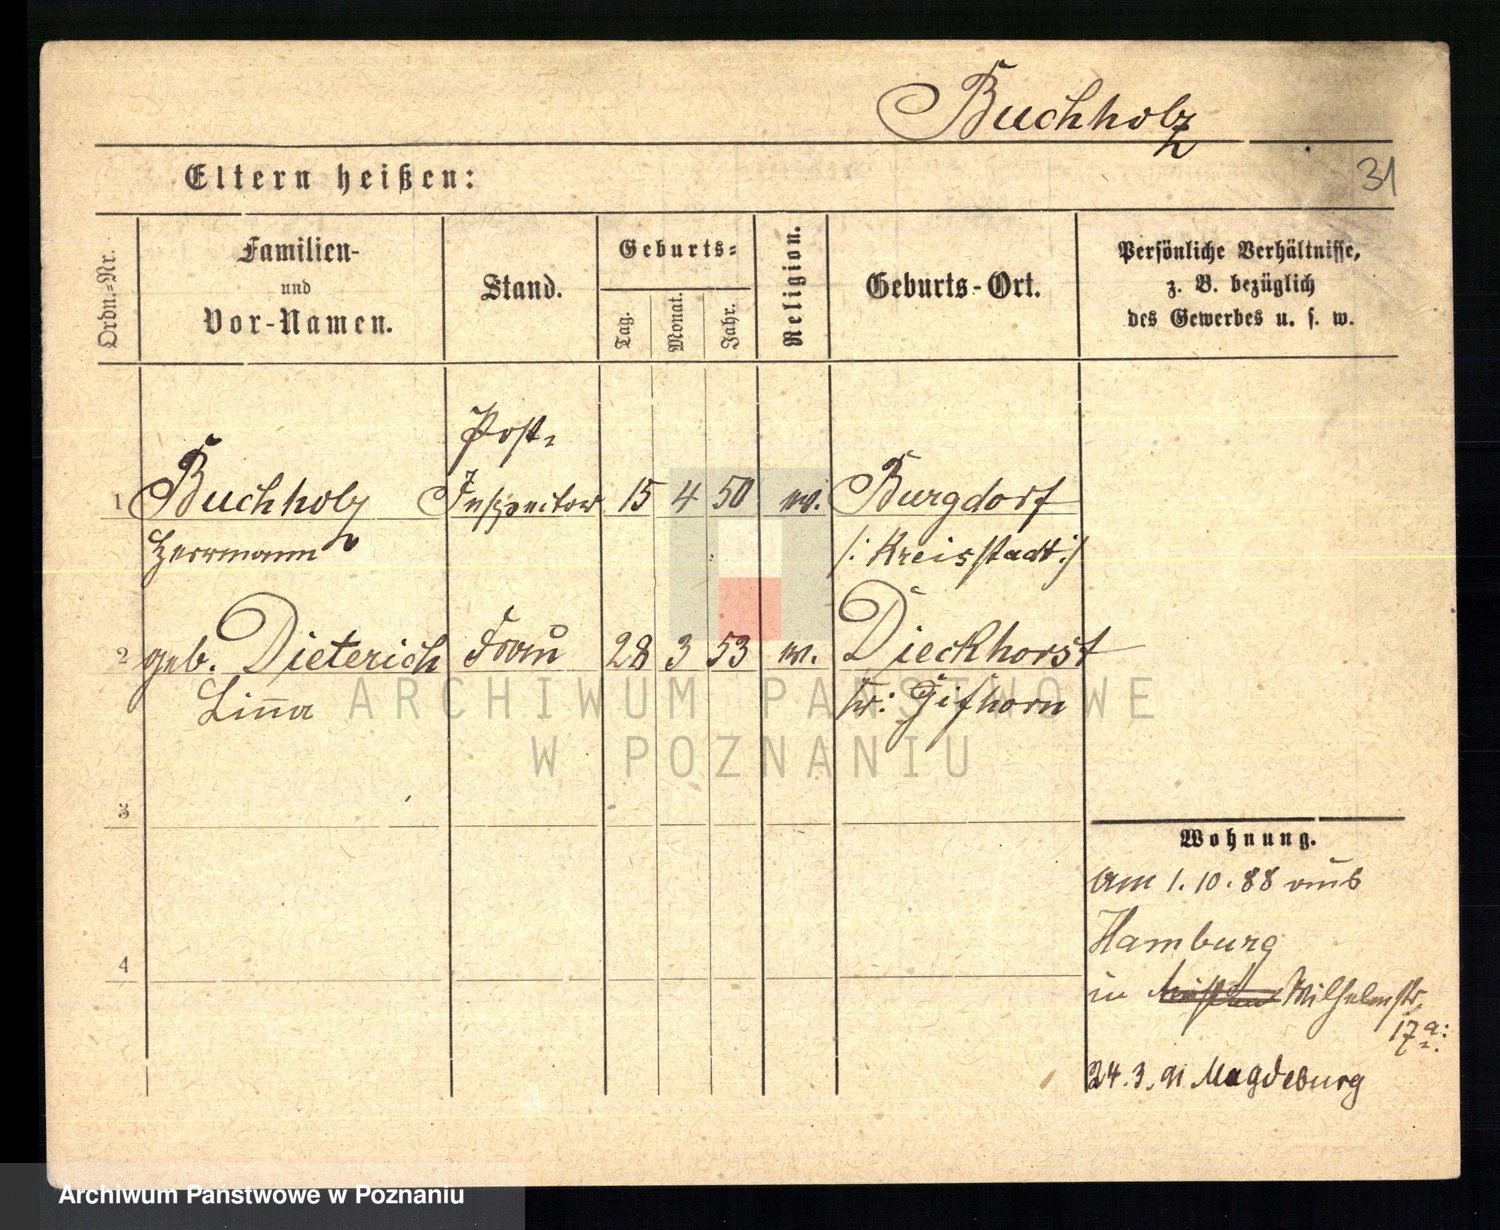 Buchholz
31
Eltern heißen:
Ordn.-Nr.
Familien-
und
Vor-Namen.
Stand.
Geburts-
Tag.
Monat.
Jahr.
Religion.
Geburts-Ort.
Persönliche Verhältnisse,
z. B. bezüglich
des Gewerbes u. s. w.
Post-
1 Buchholz Inspector 15 4 50 ev. Burgdorf
Herrmann /: Kreisstadt :/
2 geb. Dieterich Frau 28 3 53 ev. Dieckhorst
Linna Kr: Gifhorn
3
4
Wohnung.
Am 1. 10. 88 aus
Hamburg
in Wilhelmstr.
17 a:
24. 3. 91 Magdeburg
ARCHIWUM PAŃSTWOWE
W POZNANIU
Archiwum Państwowe w Poznaniu